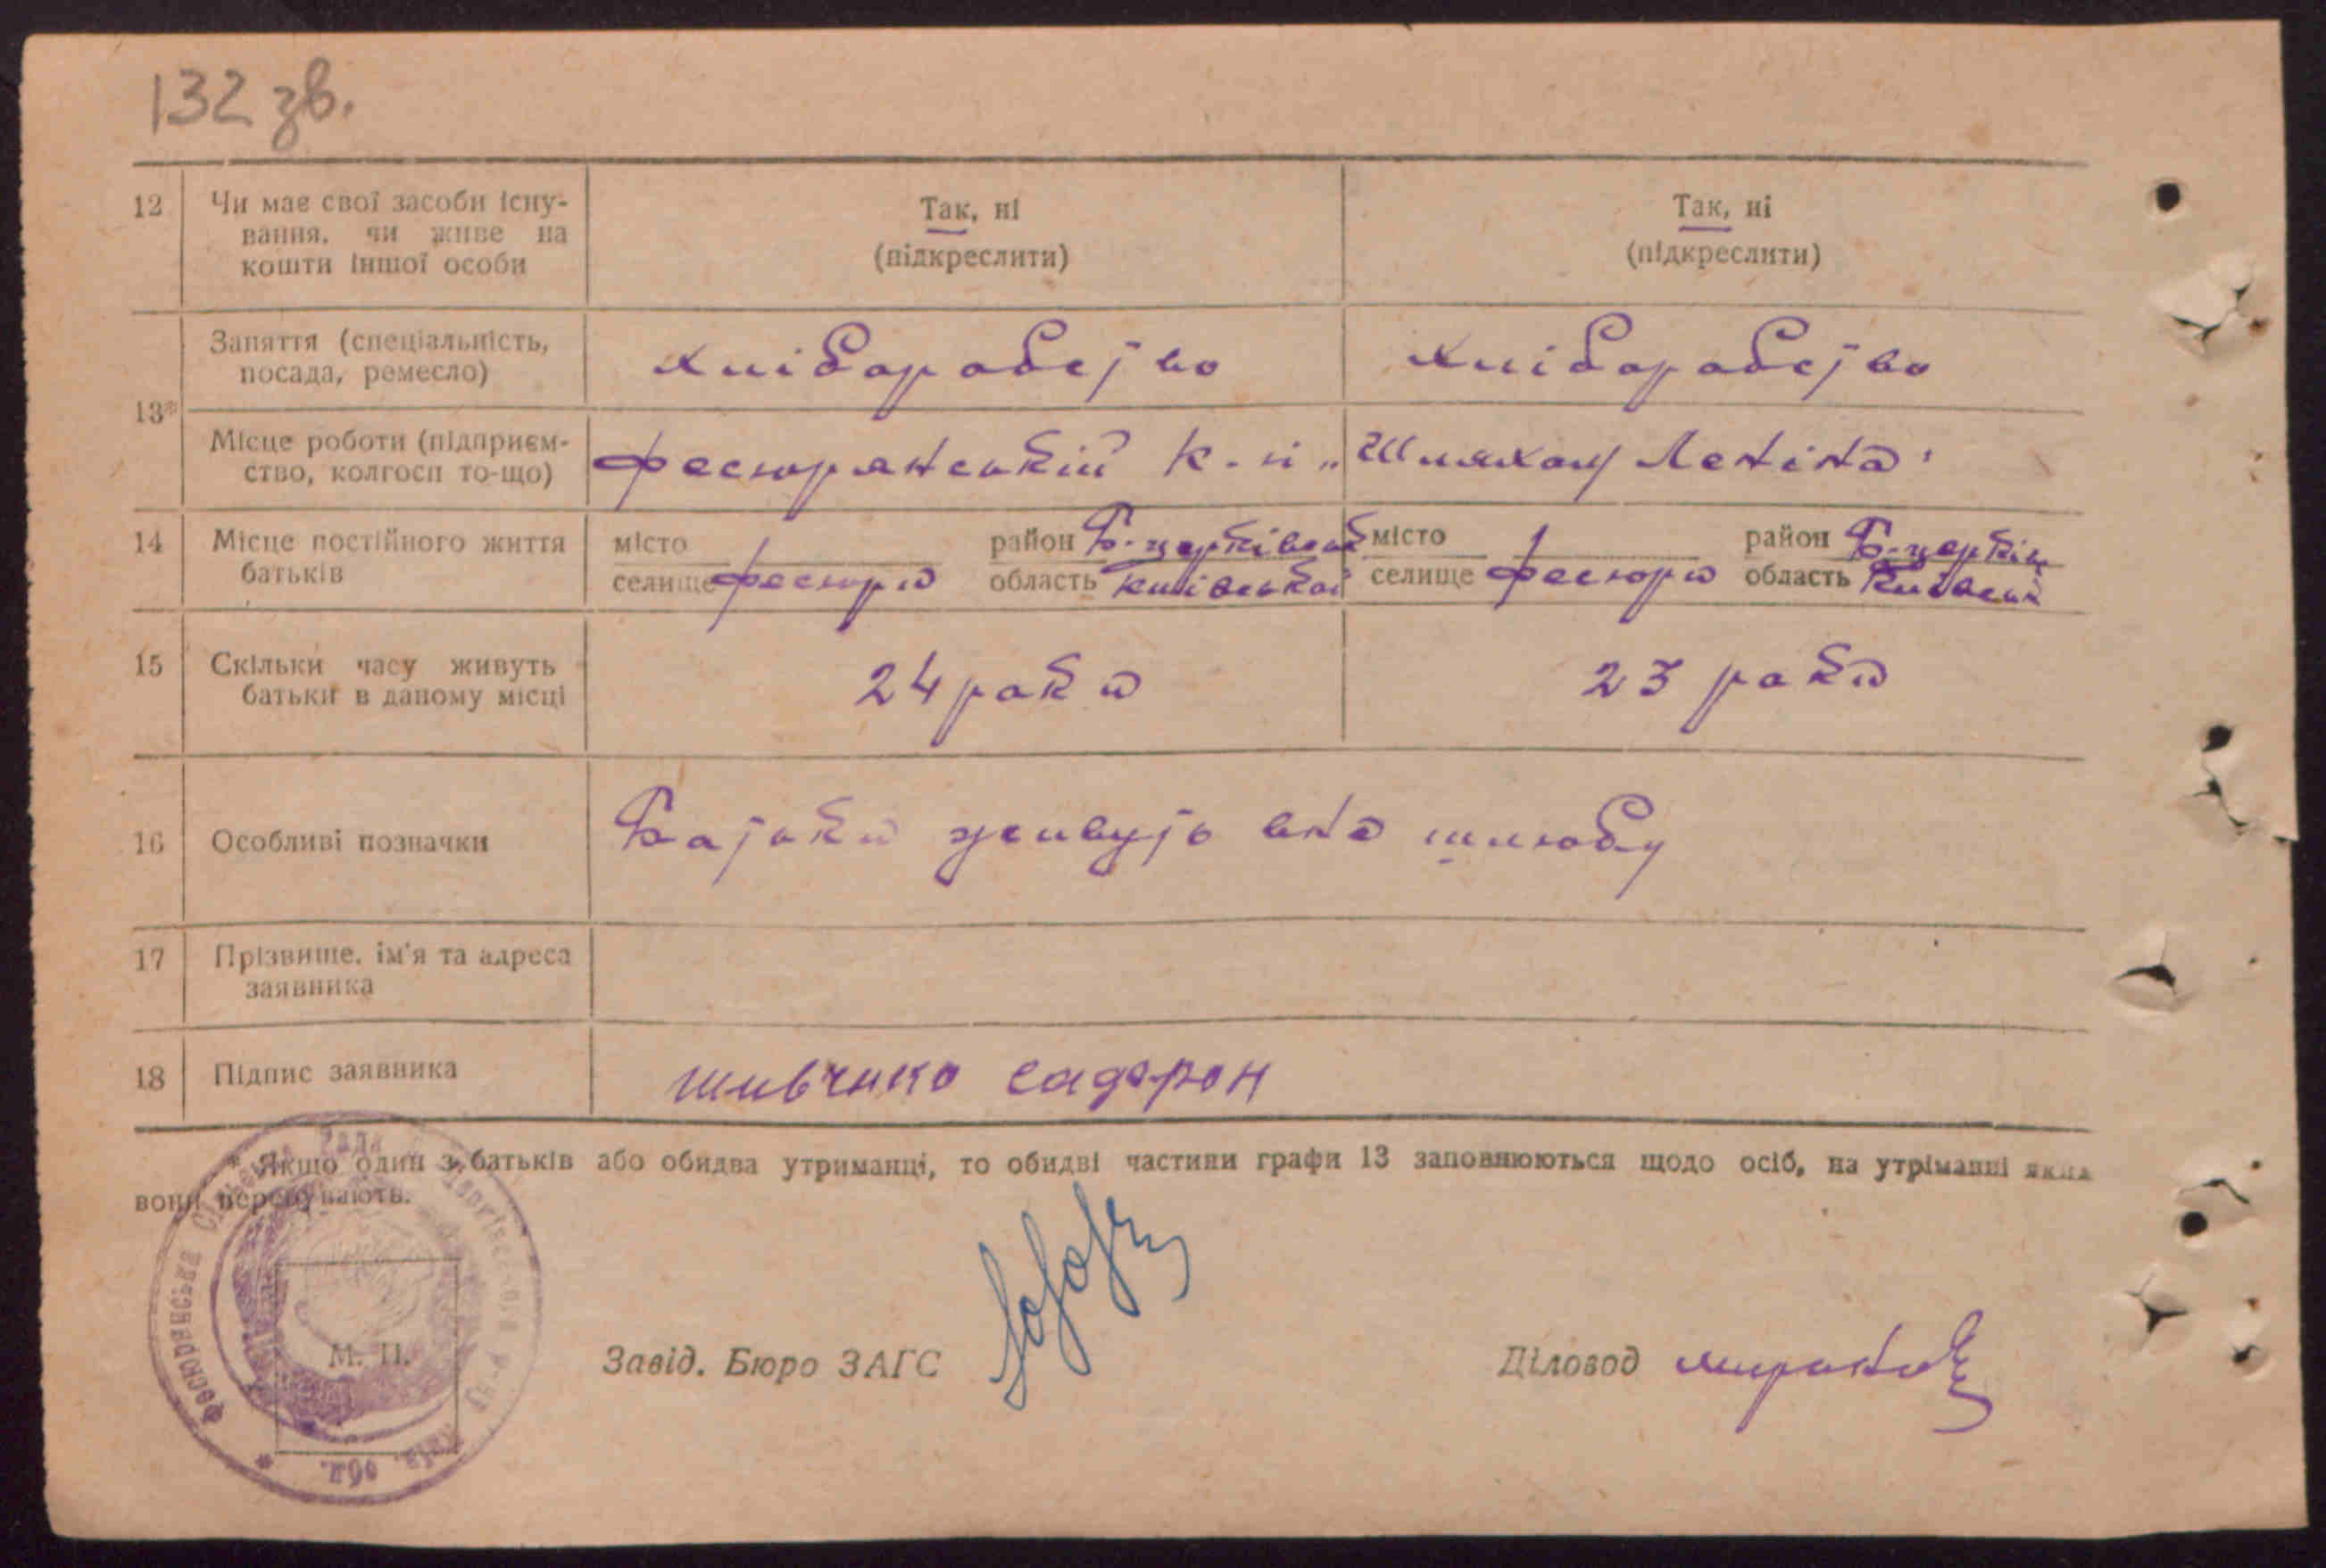 132 зв.
12 Чи має свої засоби існування, чи живе на кошти іншої особи
Так, ні
(підкреслити)
Так, ні
(підкреслити)
13*
Заняття (спеціальність,
посада, ремесло)
хліборобство
хліборобство
Місце роботи (підприєм-
ство, колгосп то-що)
Фесюрянський к-п „Шляхом Леніна"
14 Місце постійного життя
батьків
місто
селище Фесюри
район Б-церківськ
область Київської
місто
селище Фесюри
район Б-церків
область Київськ
15 Скільки часу живуть
батьки в даному місці
24 роки
23 роки
16 Особливі позначки
Батьки живуть без шлюбу
17 Прізвище, ім'я та адреса
заявника
18 Підпис заявника
* Якщо один з батьків або обидва утриманці, то обидві частини графи 13 заповнюються щодо осіб, на утріманні яких
вони перебувають.
Фесюрянська Сільська Рада обл.
М. П.
Завід. Бюро ЗАГС
Діловод